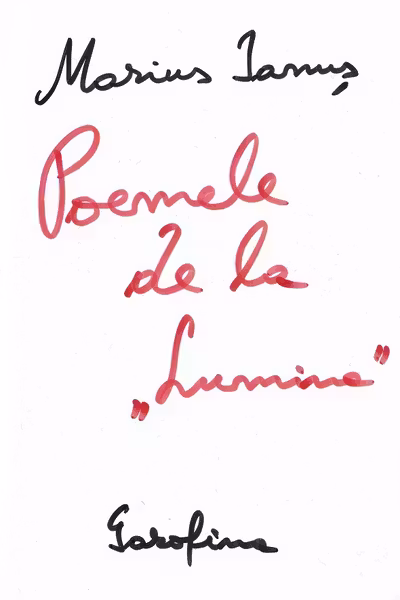 Marius Ianuș
Poemele
de la
„Lumina”
Garofina